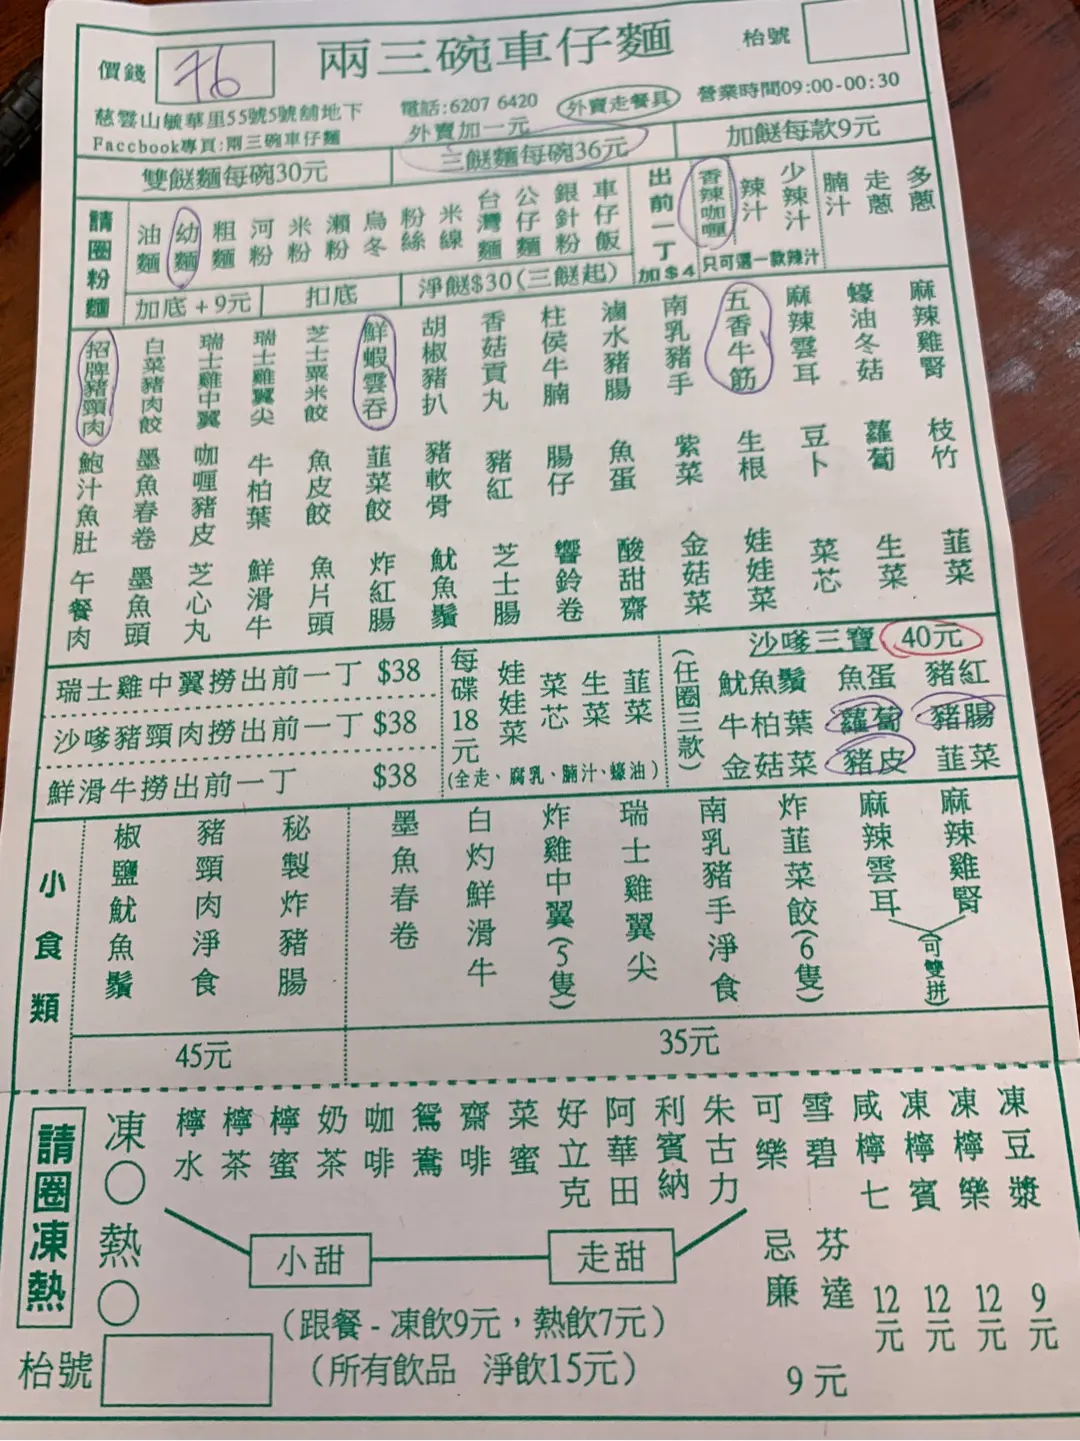 兩三碗車仔麵
價錢 76
枱號
慈雲山毓華里55號5號舖地下
電話:6207 6420
外賣走餐具
營業時間09:00-00:30
Faccbook專頁:兩三碗車仔麵
外賣加一元
雙餸麵每碗30元
三餸麵每碗36元
加餸每款9元
請圈粉麵
油麵 幼麵 粗麵 河粉 米粉 瀨粉 烏冬 粉絲 米線 台灣麵 公仔麵 銀針粉 車仔飯
出前一丁加$4
香辣咖喱 辣汁 少辣汁
只可選一款辣汁
腩汁 走蔥 多蔥
加底+9元 扣底 淨餸$30(三餸起)
招牌豬頸肉 白菜豬肉餃 瑞士雞中翼 瑞士雞翼尖 芝士粟米餃 鮮蝦雲吞 胡椒豬扒 香菇貢丸 柱侯牛腩 滷水豬腸 南乳豬手 五香牛筋 麻辣雲耳 蠔油冬菇 麻辣雞腎
鮑汁魚肚 墨魚春卷 咖喱豬皮 牛柏葉 魚皮餃 韮菜餃 豬軟骨 豬紅 腸仔 魚蛋 紫菜 生根 豆卜 蘿蔔 枝竹
午餐肉 墨魚頭 芝心丸 鮮滑牛 魚片頭 炸紅腸 魷魚鬚 芝士腸 響鈴卷 酸甜齋 金菇菜 娃娃菜 菜芯 生菜 韮菜
瑞士雞中翼撈出前一丁 $38
沙嗲豬頸肉撈出前一丁 $38
鮮滑牛撈出前一丁 $38
每碟18元
娃娃菜 菜芯 生菜 韮菜
(全走、腐乳、腩汁、蠔油)
沙嗲三寶 40元
(任圈三款)
魷魚鬚 魚蛋 豬紅
牛柏葉 蘿蔔 豬腸
金菇菜 豬皮 韮菜
小食類
椒鹽魷魚鬚 豬頸肉淨食 秘製炸豬腸
45元
墨魚春卷 白灼鮮滑牛 炸雞中翼(5隻) 瑞士雞翼尖 南乳豬手淨食 炸韮菜餃(6隻) 麻辣雲耳 麻辣雞腎
(可雙拼)
35元
請圈凍熱
凍○ 熱○
檸水 檸茶 檸蜜 奶茶 咖啡 鴛鴦 齋啡 菜蜜 好立克 阿華田 利賓納 朱古力
可樂 雪碧 忌廉 芬達 9元
咸檸七 12元
凍檸賓 12元
凍檸樂 12元
凍豆漿 9元
小甜 走甜
(跟餐-凍飲9元，熱飲7元)
(所有飲品 淨飲15元)
枱號